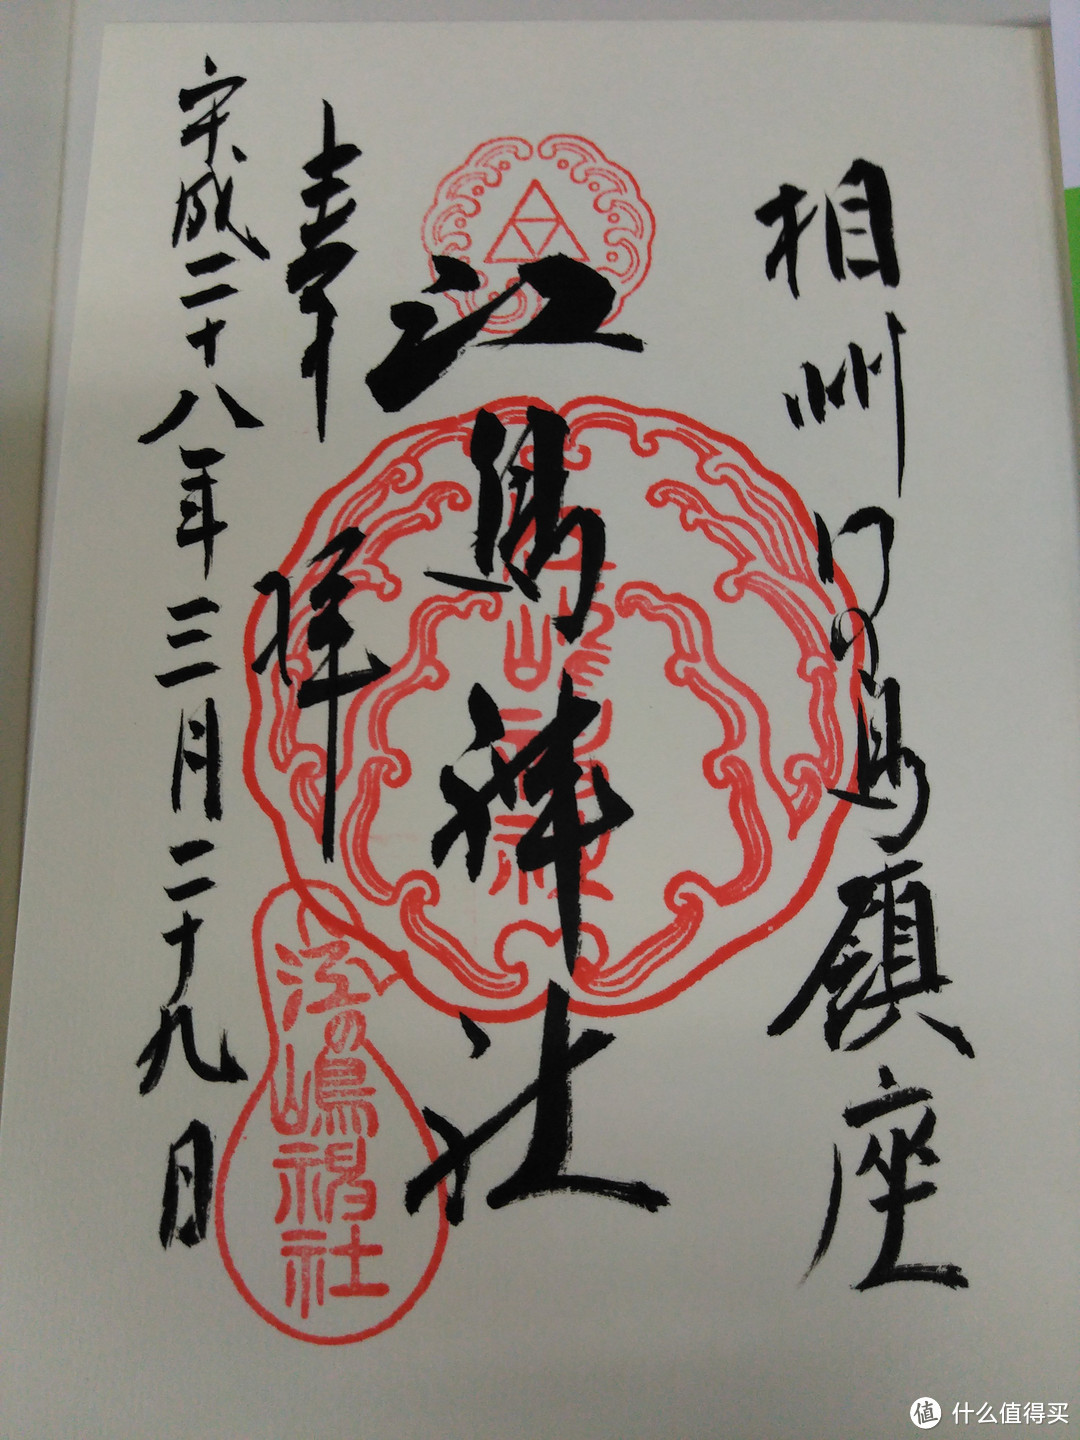 相州江の島鎮座
江島神社
奉拝
平成二十八年三月二十九日
江の嶋神社
值 什么值得买